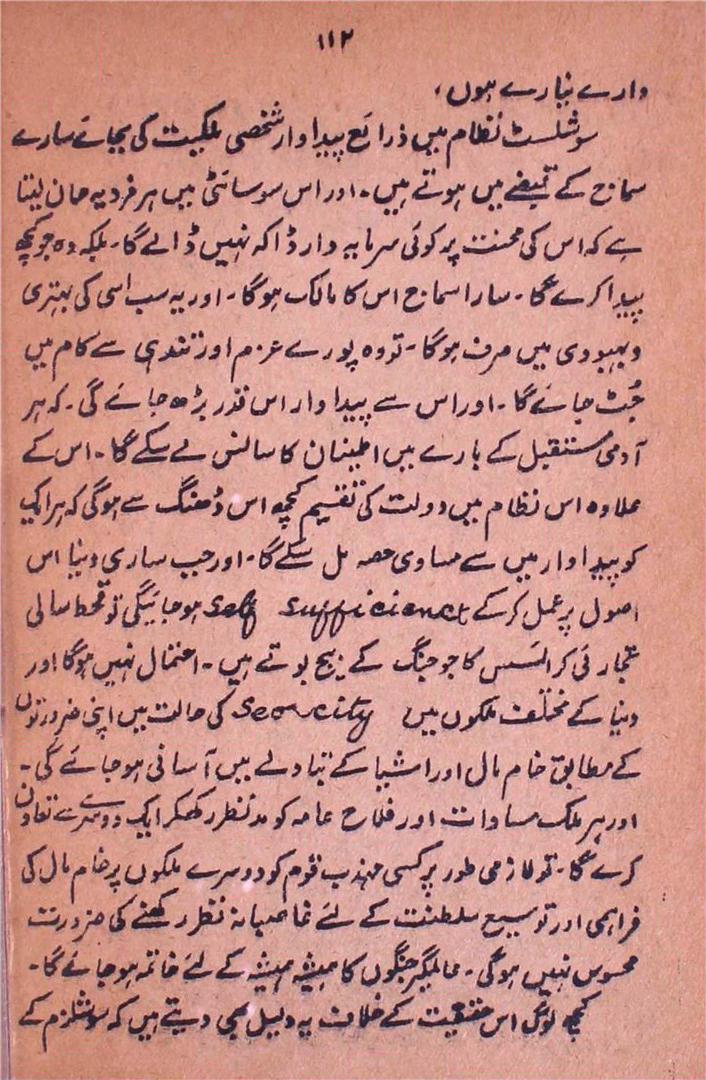 ۱۱۲
وارے نیارے ہوں،
سوشلسٹ نظام میں ذرائع پیداوار شخصی ملکیت کی بجائے سارے
سماج کے قبضے میں ہوتے ہیں۔ اور اس سوسائٹی میں ہر فرد یہ جان لیتا
ہے کہ اس کی محنت پر کوئی سرمایہ دار ڈاکہ نہیں ڈالے گا۔ بلکہ وہ جو کچھ
پیدا کرے گا۔ سارا سماج اس کا مالک ہوگا۔ اور یہ سب اسی کی بہتری
و بہبودی میں صرف ہوگا۔ تو وہ پورے عزم اور تندہی سے کام میں
جُٹ جائے گا۔ اور اس سے پیداوار اس قدر بڑھ جائے گی۔ کہ ہر
آدمی مستقبل کے بارے میں اطمینان کا سانس لے سکے گا۔ اس کے
علاوہ اس نظام میں دولت کی تقسیم کچھ اس ڈھنگ سے ہوگی کہ ہر ایک
کو پیداوار میں سے مساوی حصہ مل سکے گا۔ اور جب ساری دنیا اس
اصول پر عمل کر کے self sufficienct ہو جائیگی تو قحط سالی
تجارتی کرائسس کا جو جنگ کے بیج بوتے ہیں۔ احتمال نہیں ہوگا اور
دنیا کے مختلف ملکوں میں Searcity کی حالت میں اپنی ضرورتوں
کے مطابق خام مال اور اشیا کے تبادلے میں آسانی ہو جائے گی۔
اور ہر ملک مساوات اور فلاح عامہ کو مدنظر رکھکر ایک دوسرے سے تعاون
کرے گا۔ تو لازمی طور پر کسی مہذب قوم کو دوسرے ملکوں پر خام مال کی
فراہمی اور توسیع سلطنت کے لئے غاصبانہ نظر رکھنے کی ضرورت
محسوس نہیں ہوگی۔ عالمگیر جنگوں کا ہمیشہ ہمیشہ کے لئے خاتمہ ہو جائے گا۔
کچھ لوگ اس حقیقت کے خلاف یہ دلیل بھی دیتے ہیں کہ سوشلزم کے